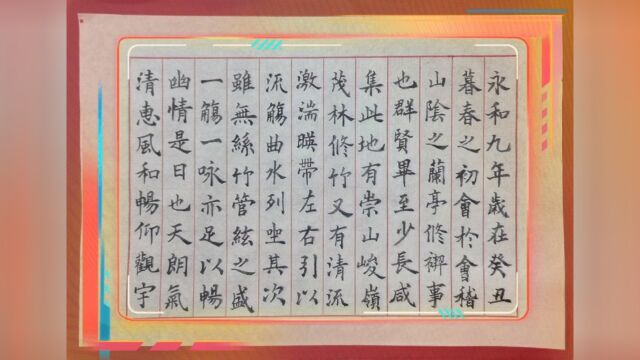 永和九年歲在癸丑
暮春之初會於會稽
山陰之蘭亭修禊事
也群賢畢至少長咸
集此地有崇山峻嶺
茂林修竹又有清流
激湍暎帶左右引以
流觴曲水列坐其次
雖無絲竹管絃之盛
一觴一咏亦足以暢
幽情是日也天朗氣
清惠風和暢仰觀宇